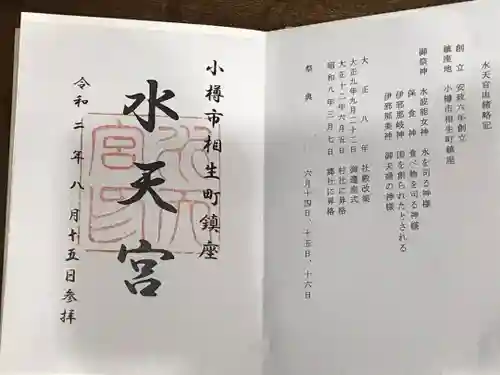 水天宮由緒略記
創立 安政六年創立
鎮座地 小樽市相生町鎮座
御祭神 水波能女神 水を司る神様
保食神 食べ物を司る神様
伊邪那岐神 国を創られたとされる
伊邪那美神 御夫婦の神様
大正八年 社殿改築
大正九年九月二十二日 御遷座式
大正十二年六月五日 村社に昇格
昭和八年三月七日 郷社に昇格
祭典 六月十四日、十五日、十六日
小樽市相生町鎮座
水天宮
令和二年八月十五日参拝